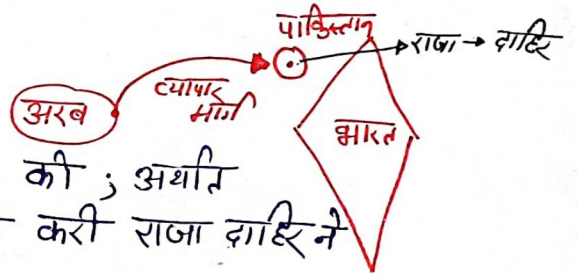 पाकिस्तान
राजा → दाहिर
अरब
व्यापार
मार्ग
भारत
की ; अर्थात
- करी राजा दाहिर ने